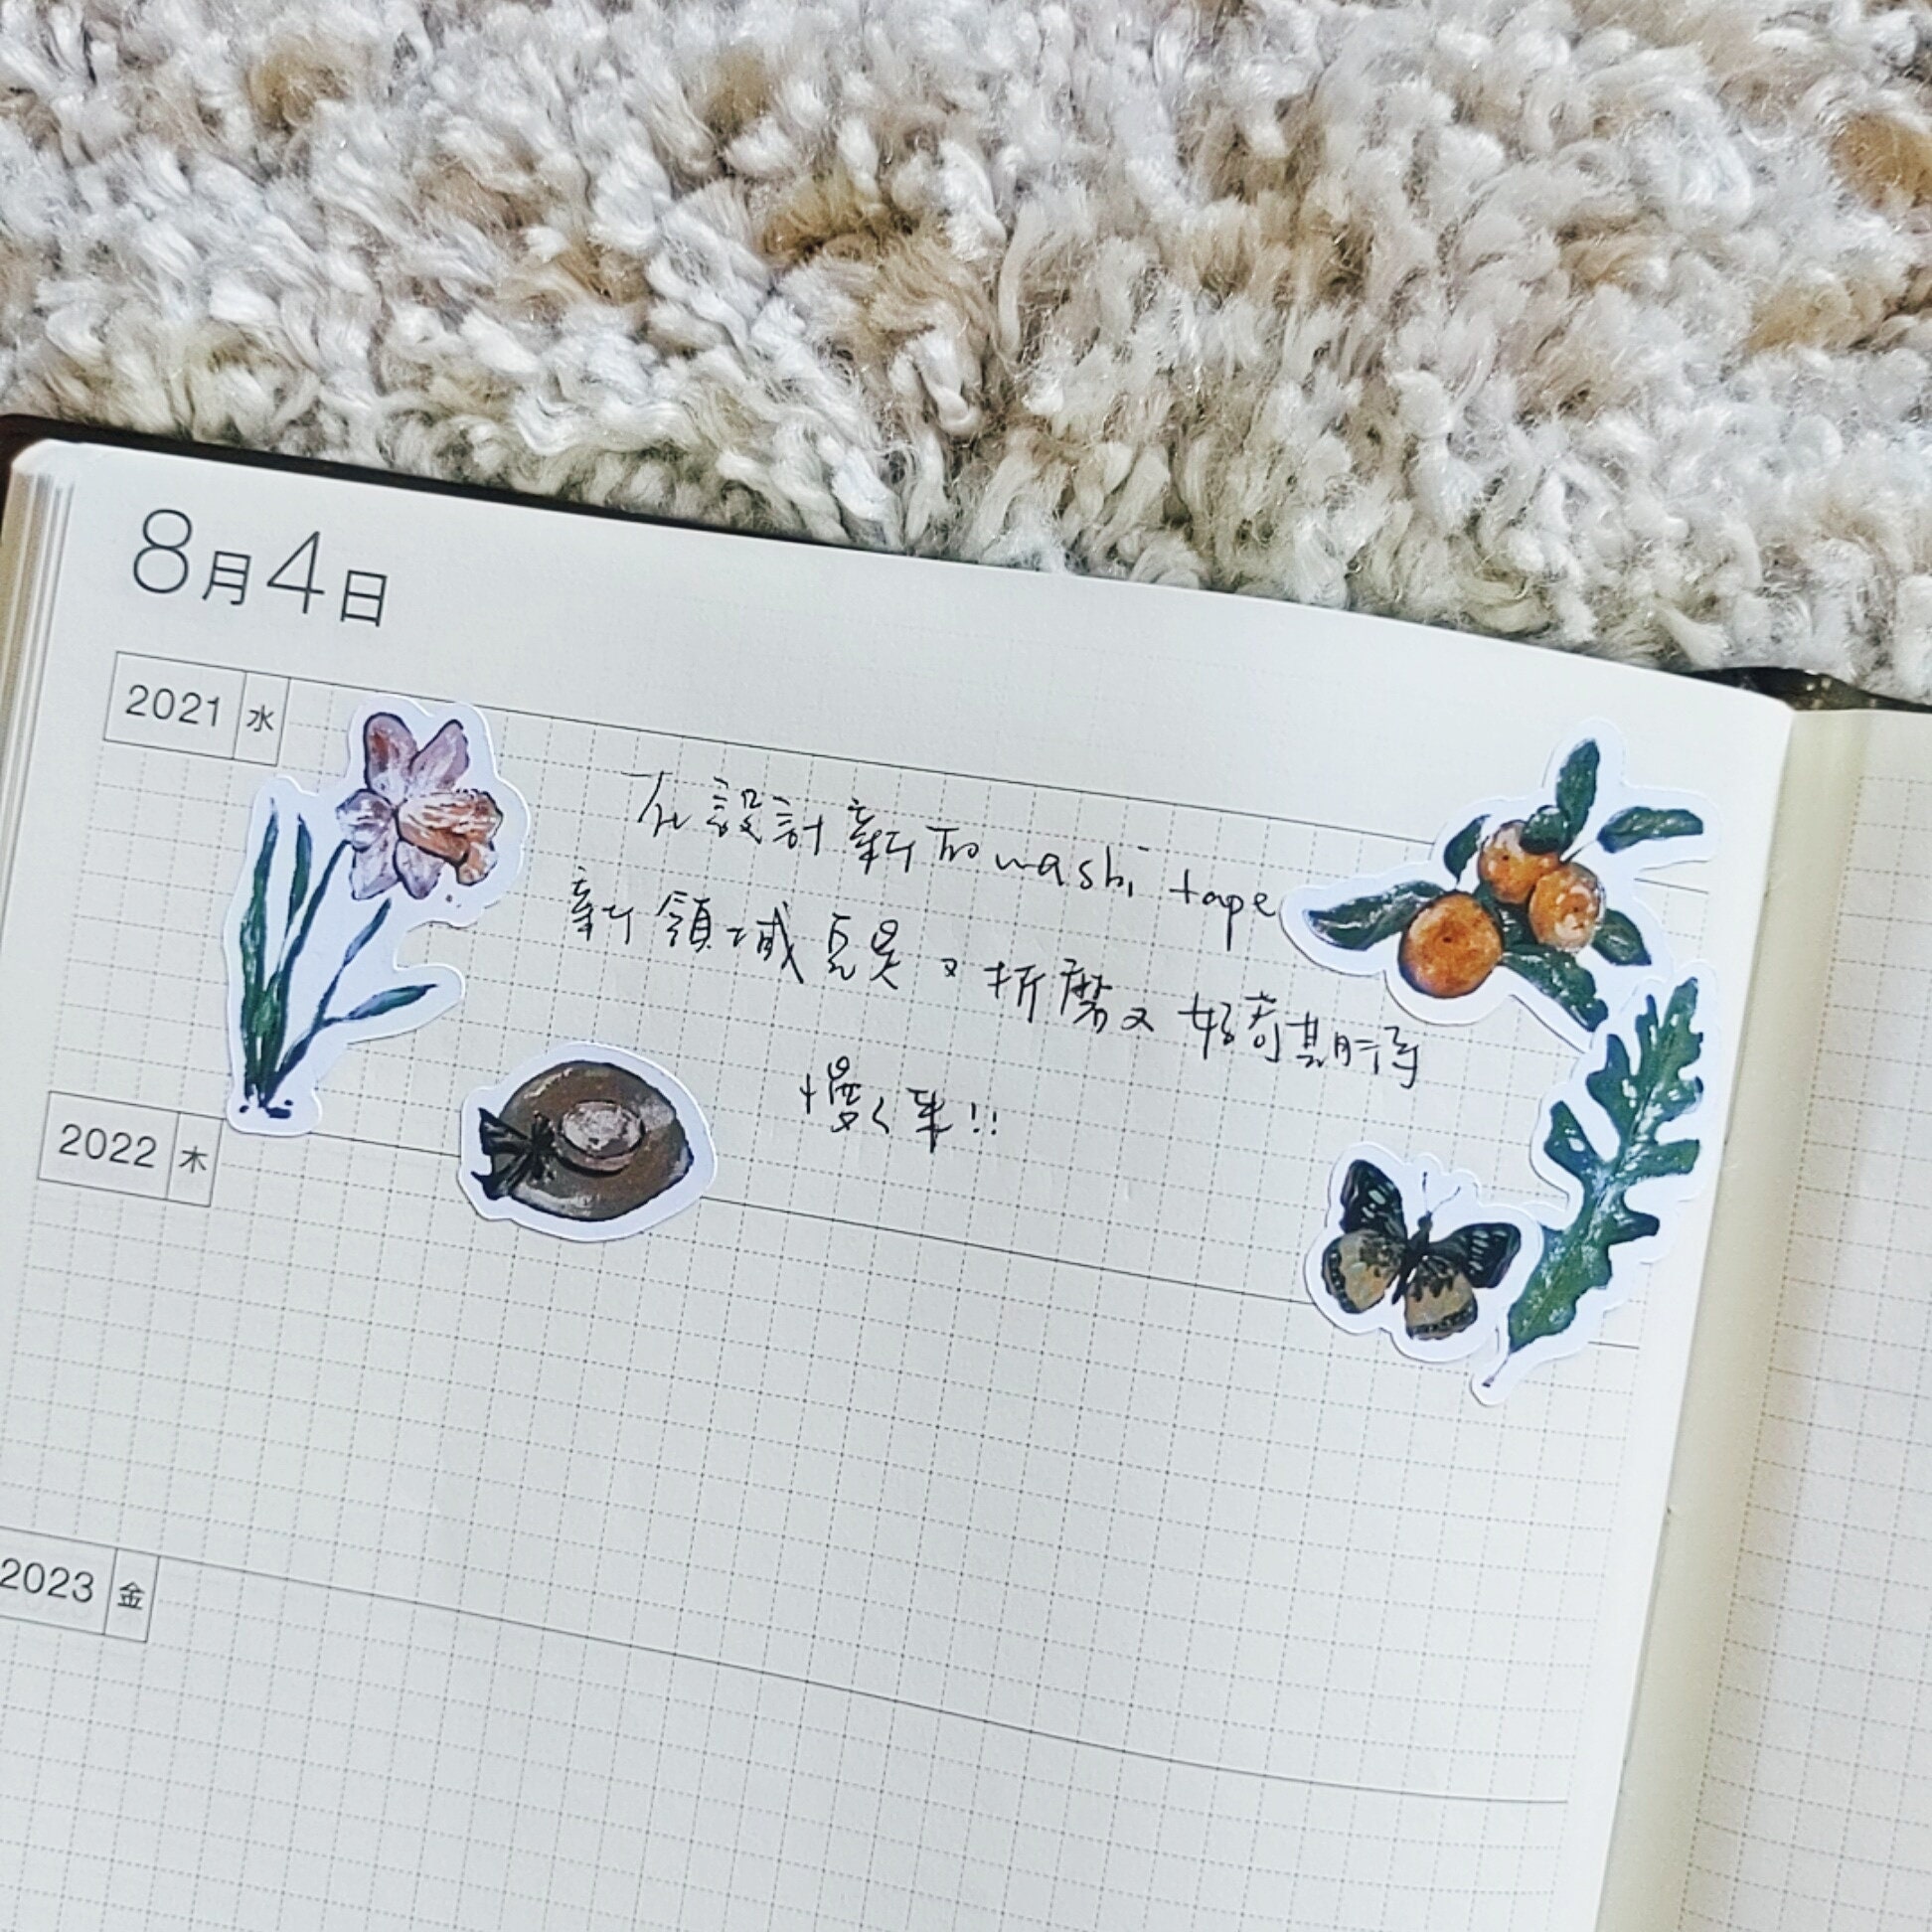 8月4日
2021 水
在設計新的washi tape
新領域真是又折磨又好奇期待
慢々來!!
2022 木
2023 金